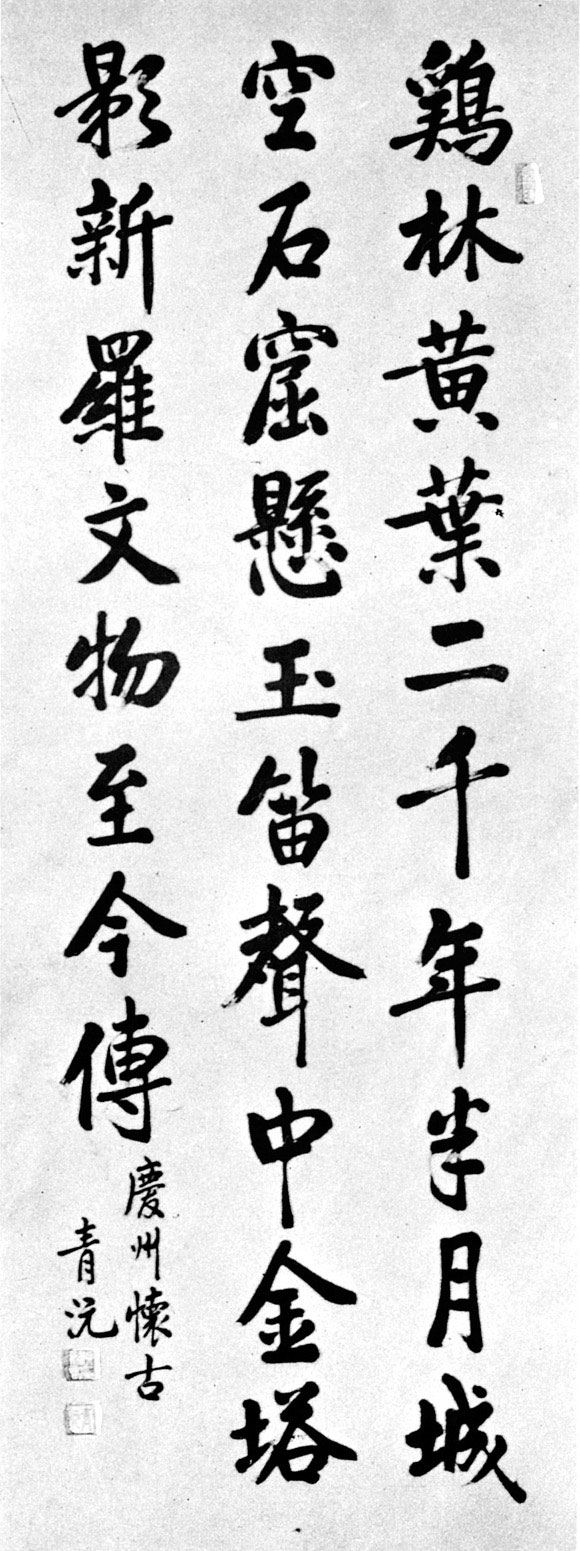 鷄林黃葉二千年半月城
空石窟懸玉笛聲中金塔
影新羅文物至今傳
慶州懷古
青沅